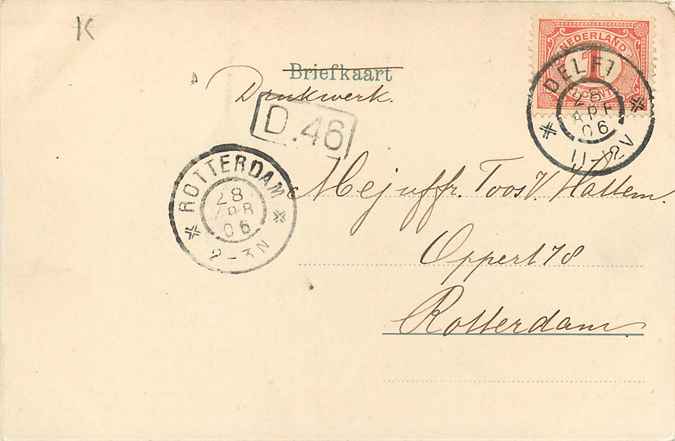 K
NEDERLAND
1
Briefkaart
Drukwerk.
DELFT
28
APR
06
11-12V
D.46
ROTTERDAM
28
APR
06
2-3N
Mejuffr. Toos V. Hattem.
Oppert 78
Rotterdam.